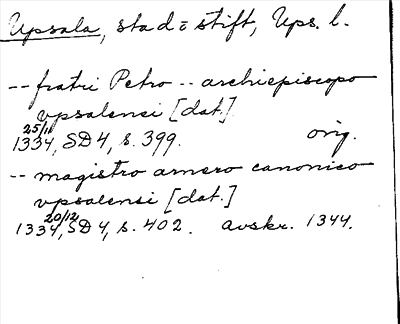 Upsala, stad o stift, Ups. l.
-- fratri Petro -- archiepiscopo
vpsalensi [dat.]
25/11
1334, SD 4, s. 399. orig.
-- magistro arnero canonico
vpsalensi [dat.]
20/12
1334, SD 4, s. 402. avskr. 1344.